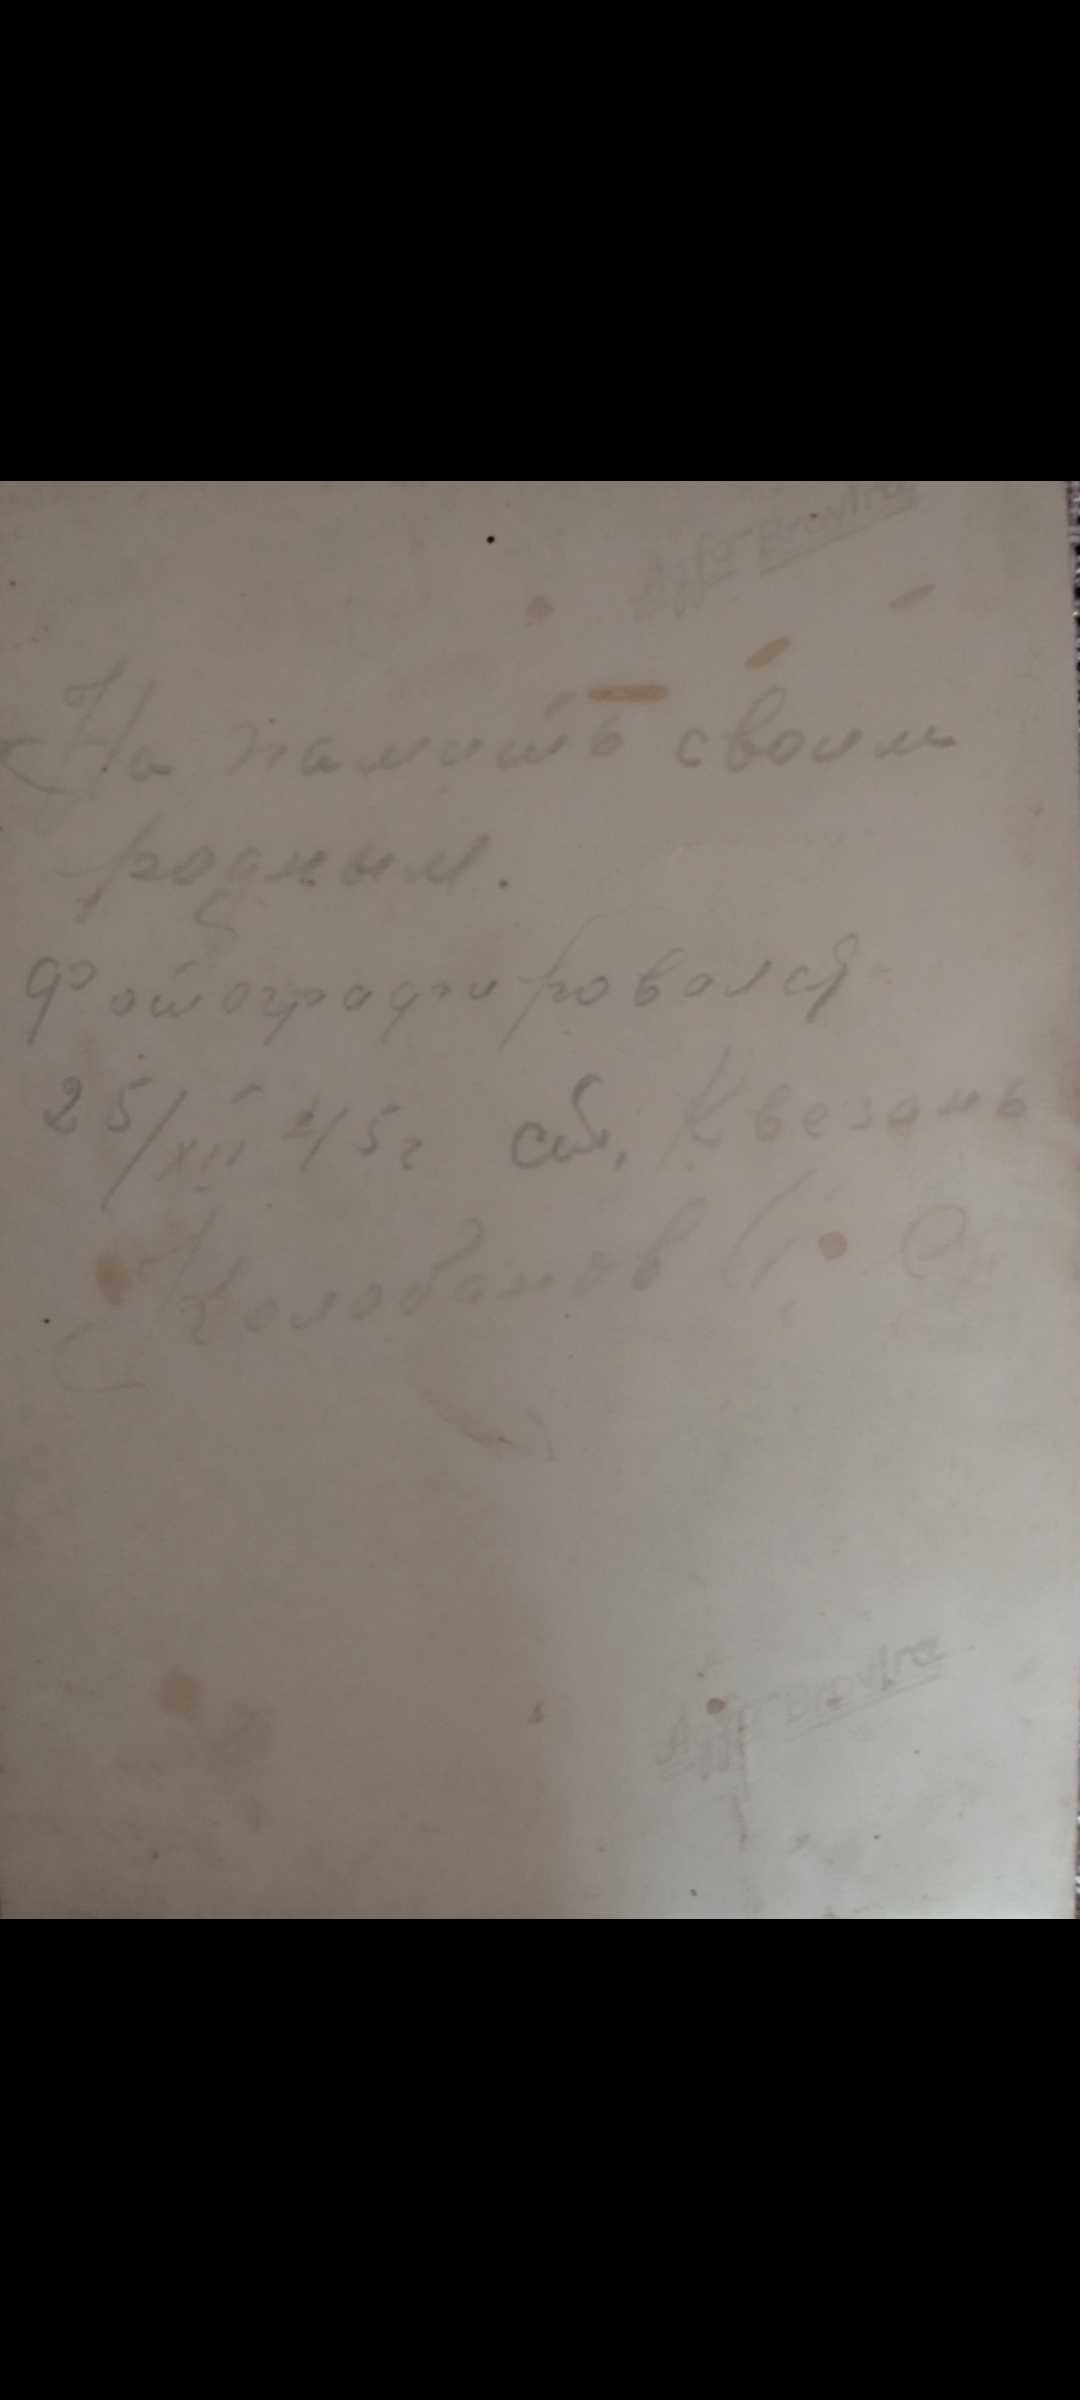 Agfa-Brovira
На память своим
родным.
Фотографировался
25/XII 45г ст. Квезань
Колобанов
Agfa-Brovira